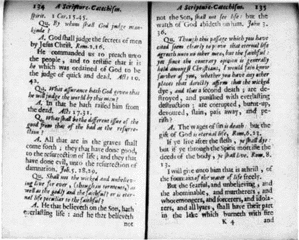 134 A Scripture-Catechism.
1 Cor. 15. 45.
Qu. By whom shall God judge mankinde?
A. God shall judge the secrets of men
by Jesus Christ, Rom. 2. 16.
He commanded us to preach unto
the people, and to testifie that it is
he which was ordained of God to be
the judge of quick and dead. Acts 10.
42.
Qu. What assurance hath God given that
he will judge the world by
A. In that he hath raised him from
the dead. Acts 17. 31.
Qu. What shall be the different issue of the
good from that of the bad at the resurrection?
A. All that are in the graves shall
come forth; they that have done good,
to the resurrection of life; and they that
have done evil, unto the resurrection of
damnation, John 5. 28, 29.
Qu. Shall not the wicked and unbelieving
live for ever, (though in torments) as
well as the godly and the faithful? or is eternal
life peculiar to the faithful?
A. He that believeth on the Son, hath
everlasting life: and he that believeth
not
A Scripture-Catechism. 135
not the Son, shall not see life; but the
wrath of God abideth on him. John 3.
36.
Qu. Though this passage which you have
cited seem clearly to prove that eternal life
agreeth unto no other men, but the faithful:
yet since the contrary opinion is generally
held among Christians, I would fain know
further of you, whether you have any other
places that directly affirm that the wicked
dye, and that a second death; are destroyed,
and punished with everlasting
destruction; are corrupted, burnt-up,
devoured, slain, pass away, and perish?
A. The wages of sin is death: but the
gift of God is eternal life, Rom. 6. 23.
If ye live after the flesh, ye shall dye;
but if ye through the Spirit mortifie the
deeds of the body, ye shall live, Rom. 8.
13.
I will give unto him that is athirst, of
the fountain of the water of life freely.
But the fearful, and unbelieving, and
the abominable, and murtherers, and
whoremongers, and sorcerers, and idolaters,
and all lyars, shall have their part
in the lake which burneth with fire
K 4 and